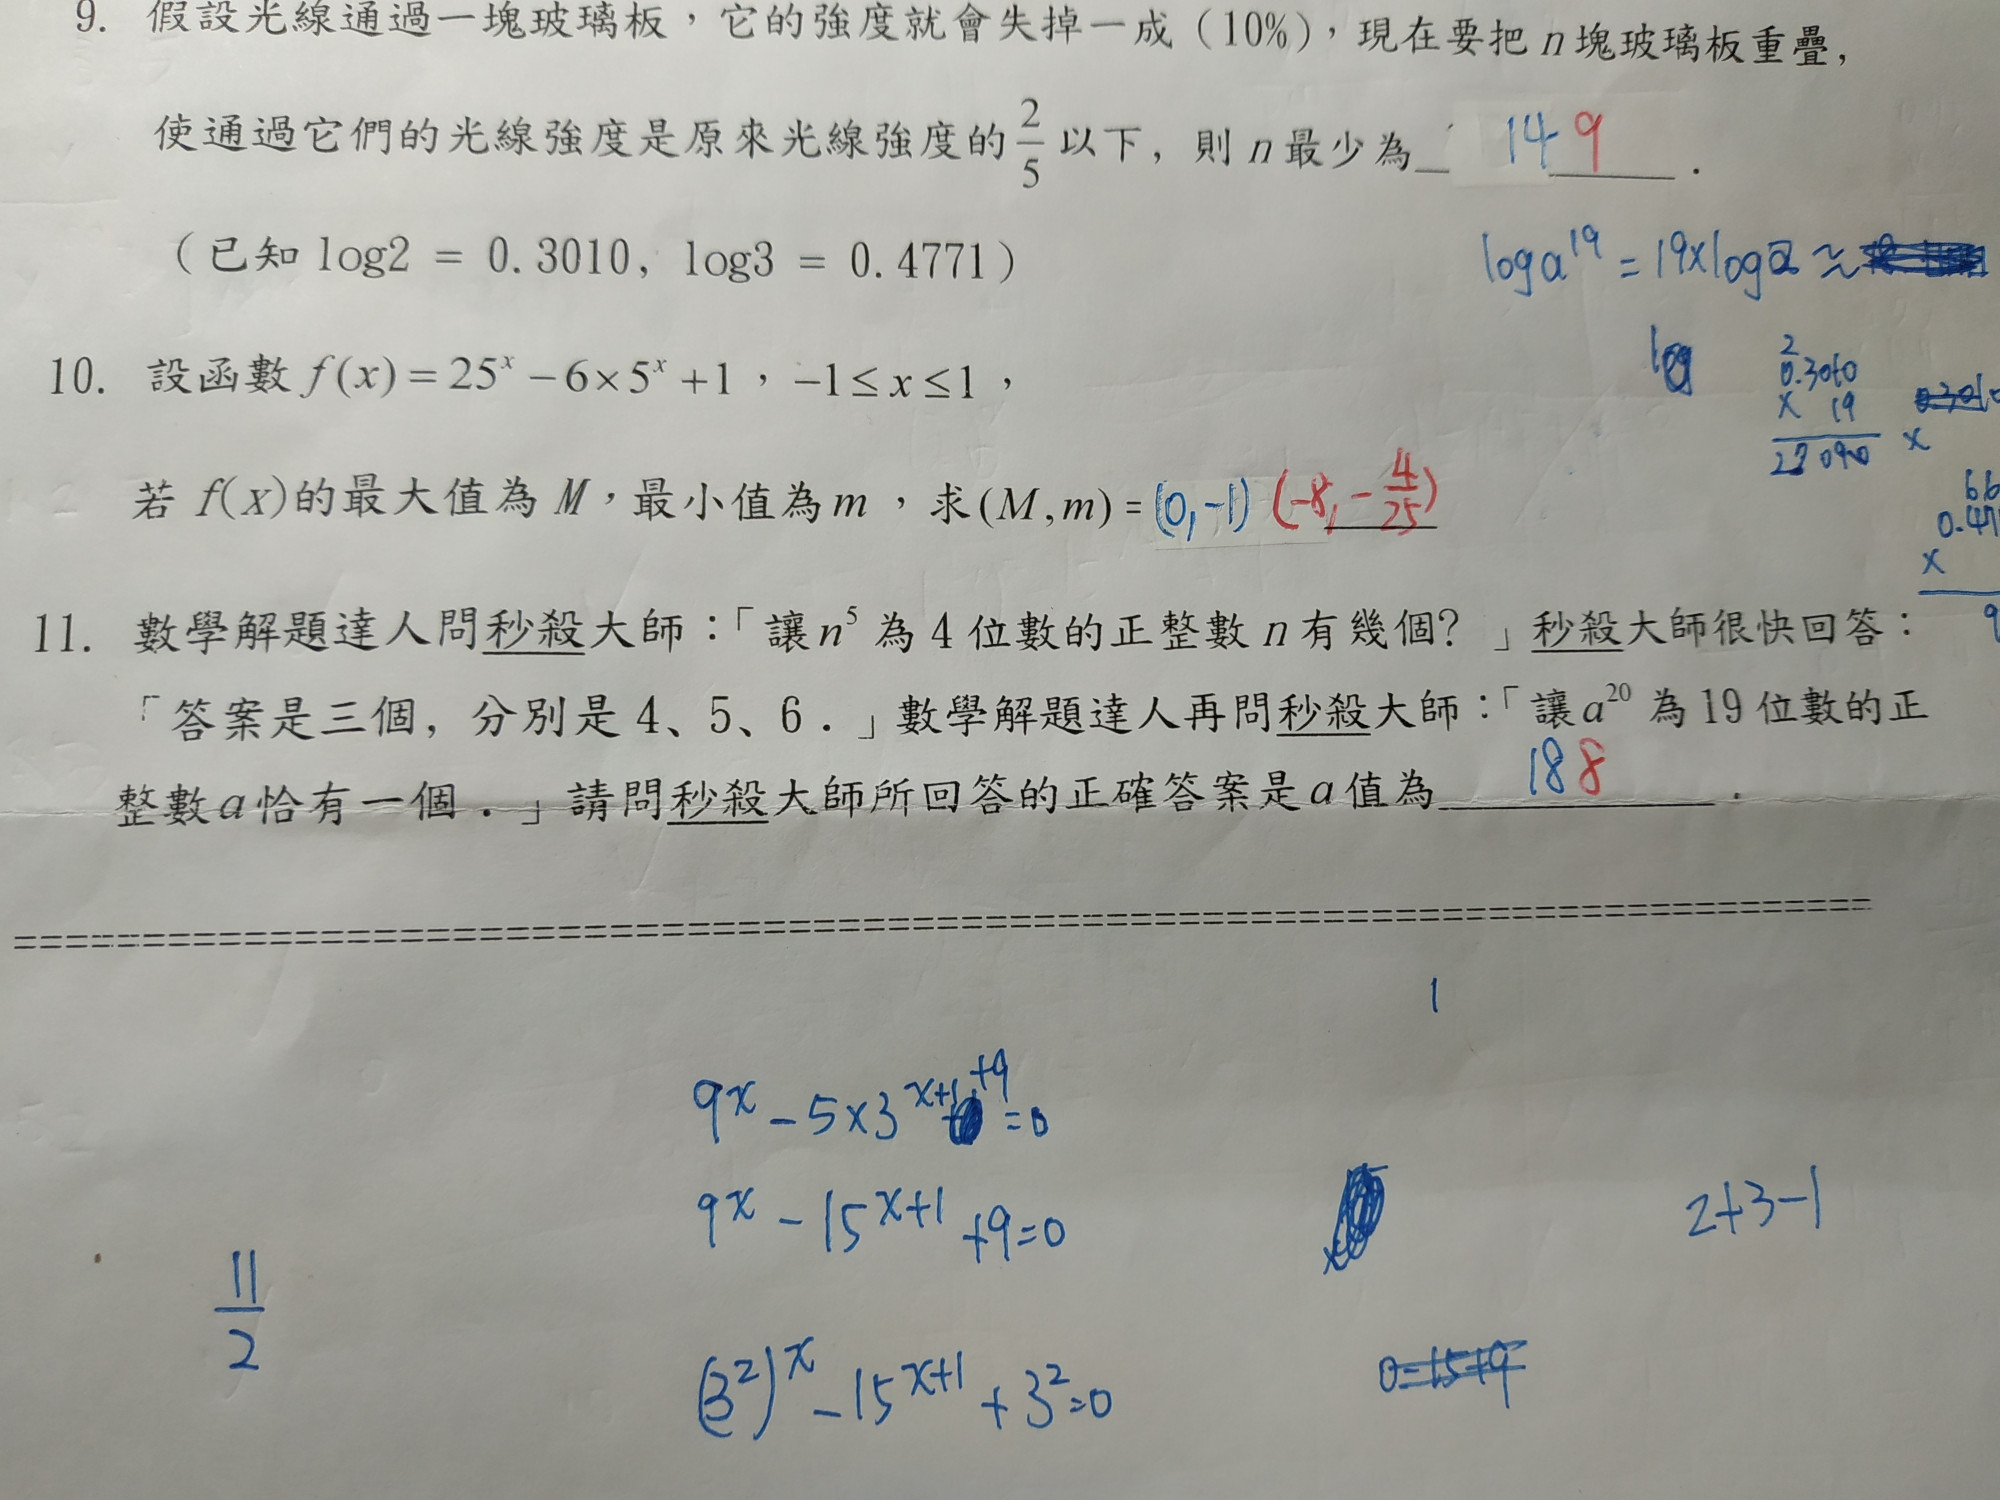 9. 假設光線通過一塊玻璃板，它的強度就會失掉一成（10%），現在要把 n 塊玻璃板重疊，
使通過它們的光線強度是原來光線強度的 2/5 以下，則 n 最少為 14 9 ．
（已知 log2 = 0.3010, log3 = 0.4771）
log a^19 = 19×log a ≈
log
2
0.3010
× 19
×
66
0.47
×
9
10. 設函數 f(x) = 25^x − 6×5^x + 1，−1 ≤ x ≤ 1，
若 f(x)的最大值為 M，最小值為 m，求(M,m) = (0,-1) (-8, -4/25)
11. 數學解題達人問秒殺大師：「讓 n^5 為 4 位數的正整數 n 有幾個？」秒殺大師很快回答：
「答案是三個，分別是 4、5、6．」數學解題達人再問秒殺大師：「讓 a^20 為 19 位數的正
整數 a 恰有一個．」請問秒殺大師所回答的正確答案是 a 值為 18 8 ．
1
9^x - 5×3^x+1 +9 =0
9^x - 15^x+1 +9=0
2+3-1
11/2
(3^2)^x - 15^x+1 + 3^2=0
0=15+9